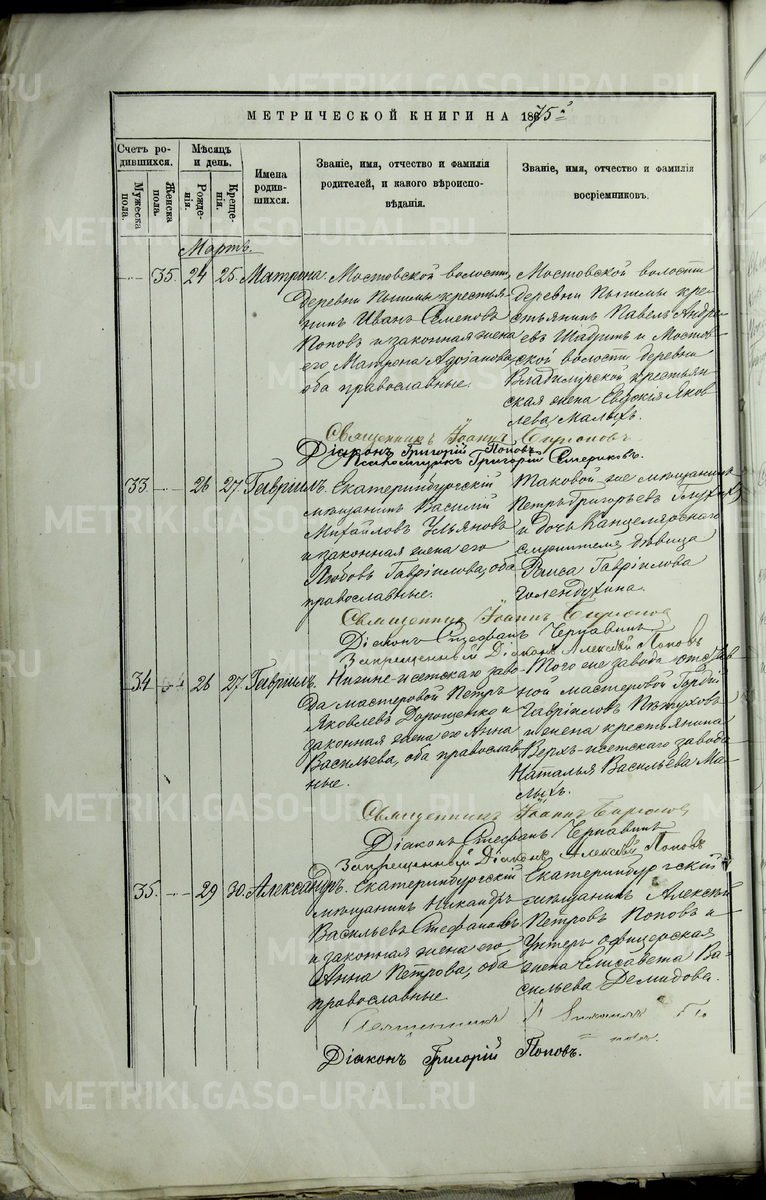 МЕТРИЧЕСКОЙ КНИГИ НА 1875й
Счетъ родившихся.
Мужеска пола.
Женска пола.
Мѣсяцъ и день.
Рожденія.
Крещенія.
Имена родившихся.
Званіе, имя, отчество и фамилія родителей, и какого вѣроисповѣданія.
Званіе, имя, отчество и фамилія воспріемниковъ.
Мартъ.
35. 24 25. Матрона.
Мостовской волости,
деревни Пышмы крестья-
нинъ Иванъ Семеновъ
Поповъ и законная жена
его Матрона Адріанова,
оба православные.
Мостовской волости
деревни Пышмы кре-
стьянинъ Павелъ Андре-
евъ Шадринъ и Мостов-
ской волости деревни
Владимірской крестьян-
ская жена Евдокія Яков-
лева Малыхъ.
Священникъ Іоаннъ
Діаконъ Григорій Поповъ.
Псаломщикъ Григорій
33 26 27. Гавріилъ.
Екатеринбургскій
мѣщанинъ Василій
Михайловъ Ульяновъ
и законная жена его
Любовь Гавріилова, оба
православные.
Таковой же мѣщанинъ
Петръ Григорьевъ Глухихъ
и дочь Канцелярскаго
служителя дѣвица
Раиса Гавріилова
Голендухина.
Священникъ Іоаннъ
Діаконъ Стефанъ Чернавинъ
Запрещенный Діаконъ Алексѣй Поповъ
34 26 27. Гавріилъ.
Нижне-исетскаго заво-
да мастеровой Петръ
Яковлевъ Дорошенко и
законная жена его Анна
Васильева, оба православ-
ные.
Того же завода отстав-
ной мастеровой Гордій
Гавріиловъ Пѣтуховъ
и жена крестьянина
Верхъ-исетскаго завода
Наталья Васильева Ма-
лыхъ.
Священникъ Іоаннъ
Діаконъ Стефанъ Чернавинъ
Запрещенный Діаконъ Алексѣй Поповъ
35. 29 30. Александръ.
Екатеринбургскій
мѣщанинъ Никандръ
Васильевъ Стефановъ
и законная жена его
Анна Петрова, оба
православные.
Екатеринбургскій
мѣщанинъ Алексѣй
Петровъ Поповъ и
Унтеръ офицерская
жена Елисавета Ва-
сильева Демидова.
Священникъ
Діаконъ Григорій Поповъ.
METRIKI.GASO-URAL.RU